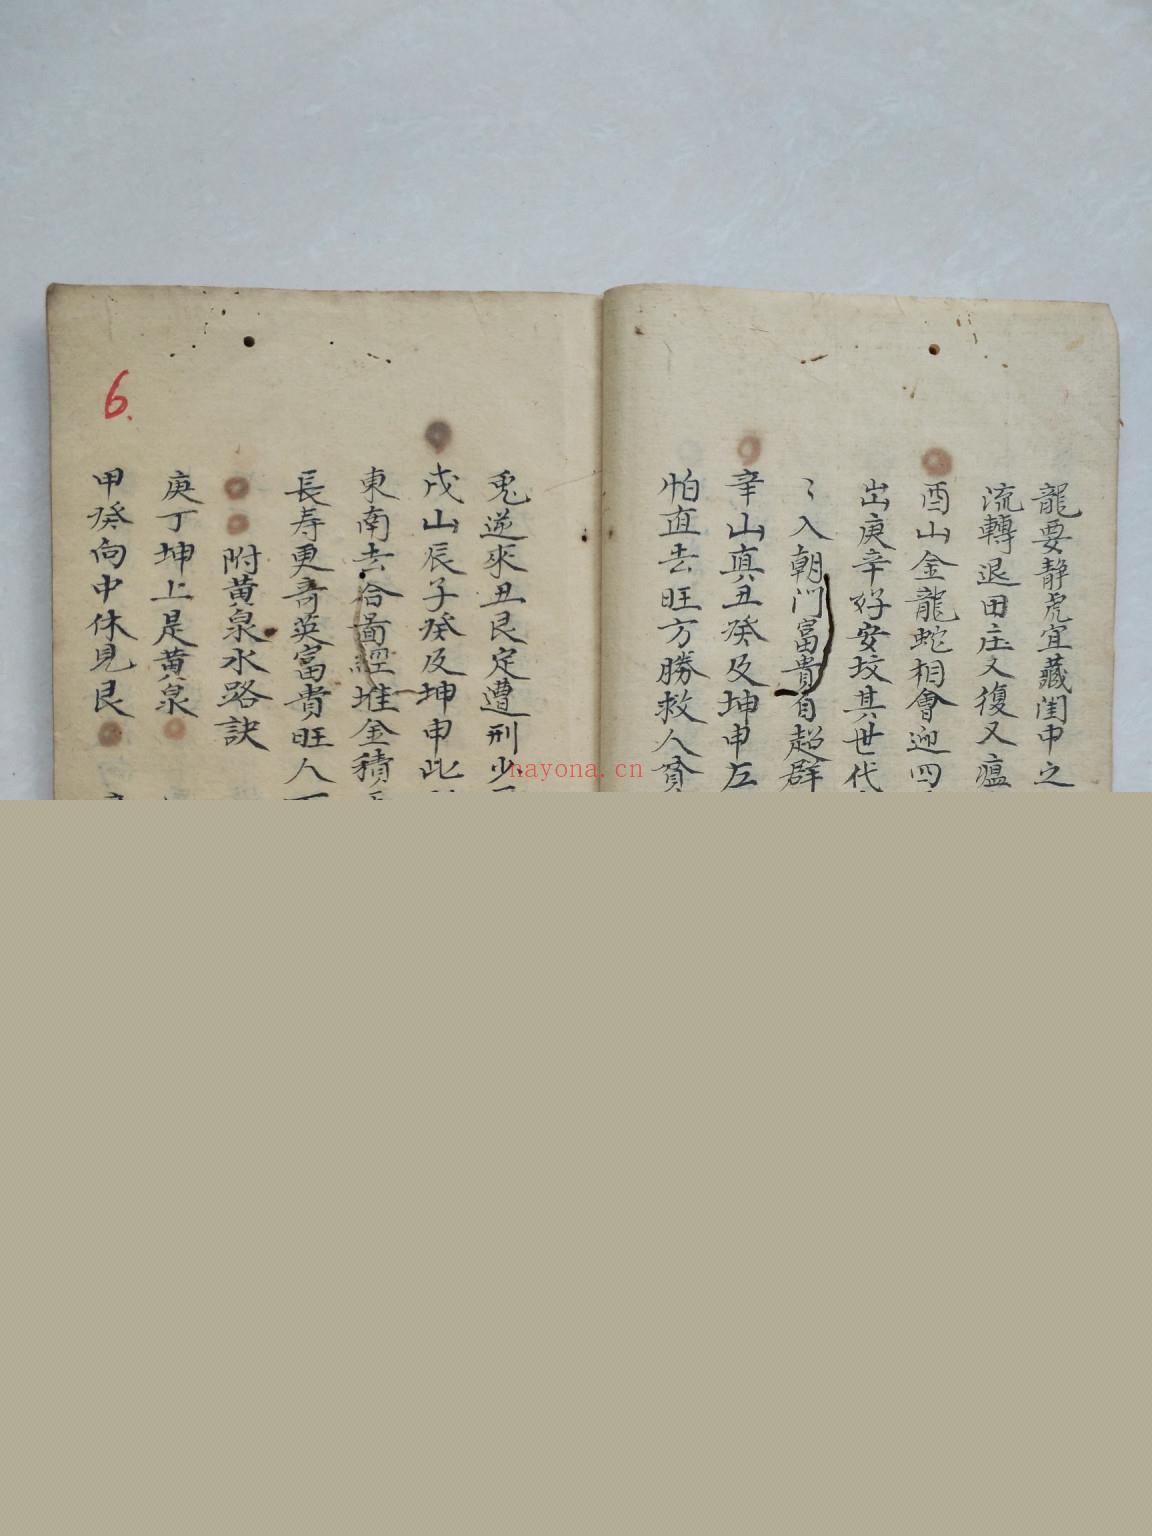 龍要静虎宜藏閨中之
流轉退田庄又復又瘟
酉山金龍蛇相會迎四
出庚辛好安坟其世代
〻入朝門富貴自超群
辛山真丑癸及坤申左
怕直去旺方勝救人貧
兎逆來丑艮定遭刑少
戌山辰子癸及坤申此
東南去合啚經堆金積
長寿更奇英富貴旺人
附黄泉水路訣
庚丁坤上是黄泉
甲癸向中休見艮
6.
nayona.cn